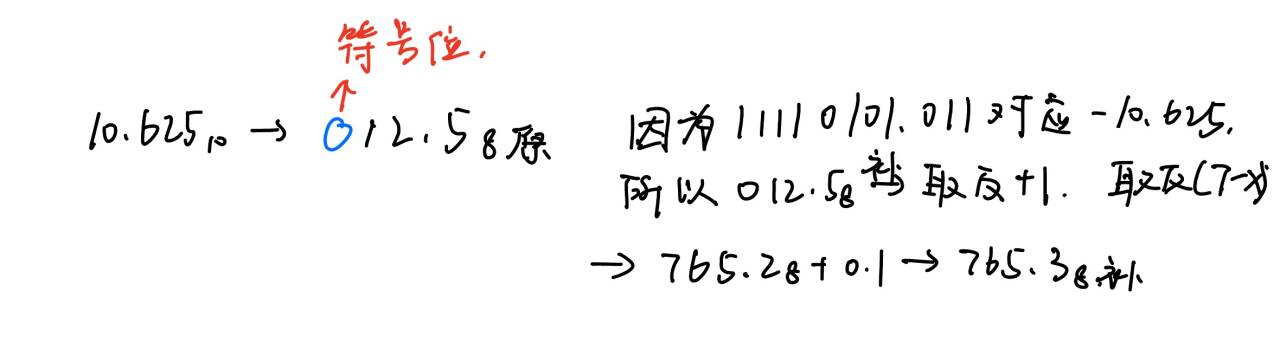 符号位.
↑
10.625₁₀ → 012.5₈原
因为 11110101.011 对应 -10.625.
所以 012.5₈补 取反+1. 取反(7-x)
→ 765.2₈ + 0.1 → 765.3₈补